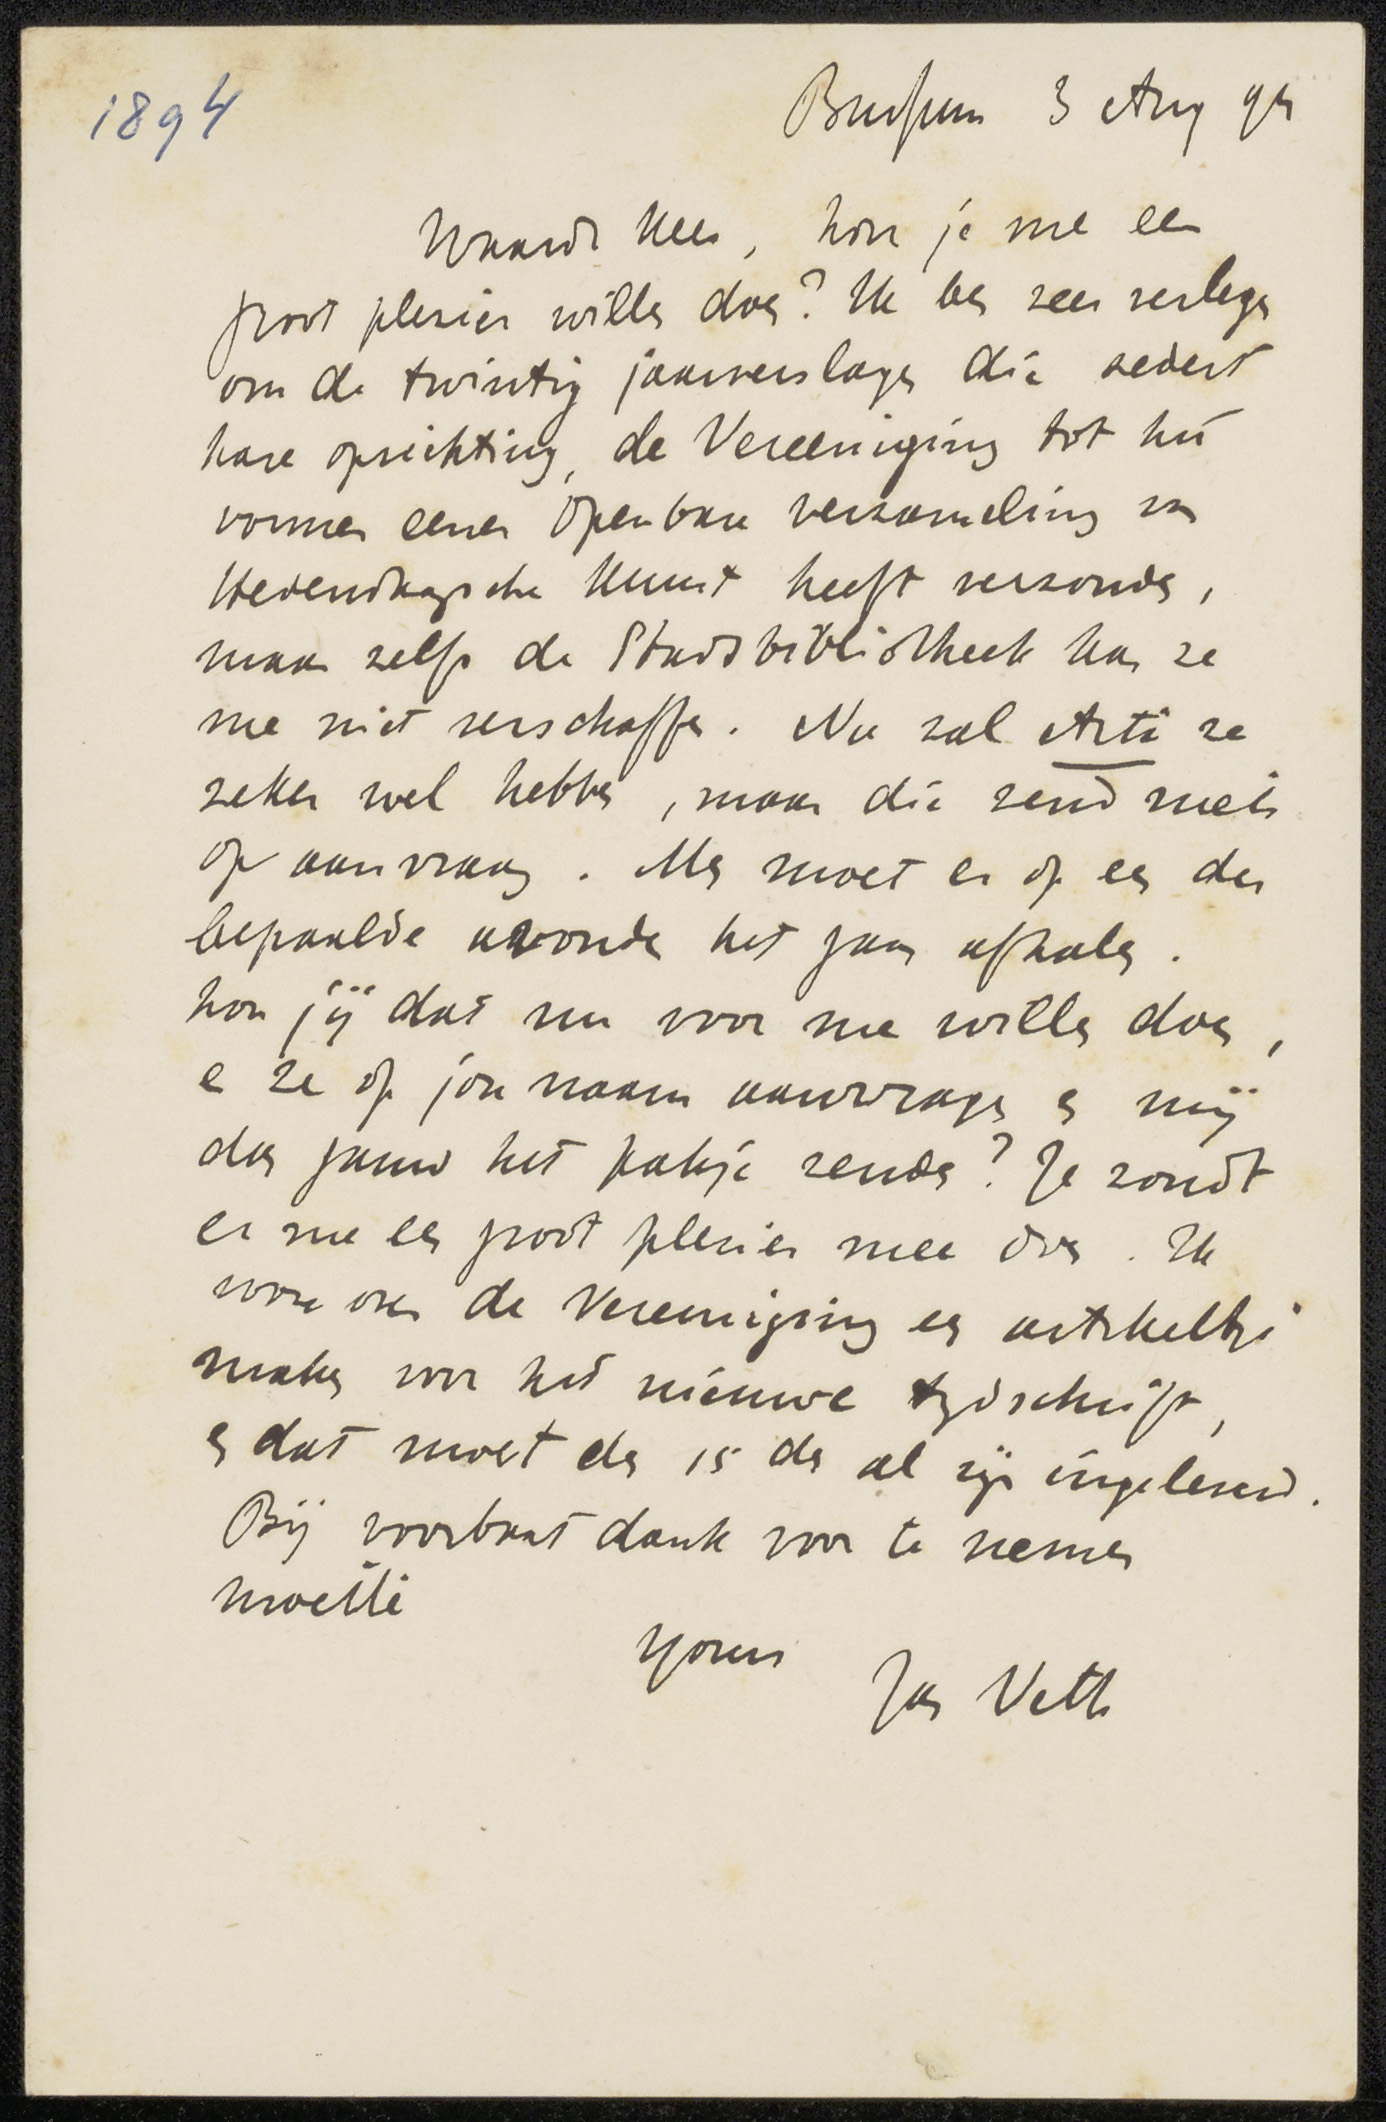 1894
Bussum 3 Aug 94
Waarde Kees, kon je me een
groot plezier willen doen? Ik ben zeer verlegen
om de twintig jaarverslagen die sedert
hare oprichting, de Vereeniging tot het
vormen eener openbare verzameling van
Hedendaagsche Kunst heeft verzonden,
maar zelfs de Stadsbibliotheek kan ze
me niet verschaffen. Nu zal Arti ze
zeker wel hebben, maar die zend niets
op aanvraag. Men moet er op een der
bepaalde avonden het gaan afhalen.
kon jij dat nu voor me willen doen,
en ze op jou naam aanvragen en mij
dan gauw het pakje zenden? Je zoudt
er me een groot plezier mee doen. Ik
wou over de Vereeniging een artikeltje
maken voor het nieuwe tydschrift,
en dat moet den 15 den al zijn ingeleverd.
Bij voorbaat dank voor te nemen
moeite
Yours Jan Veth